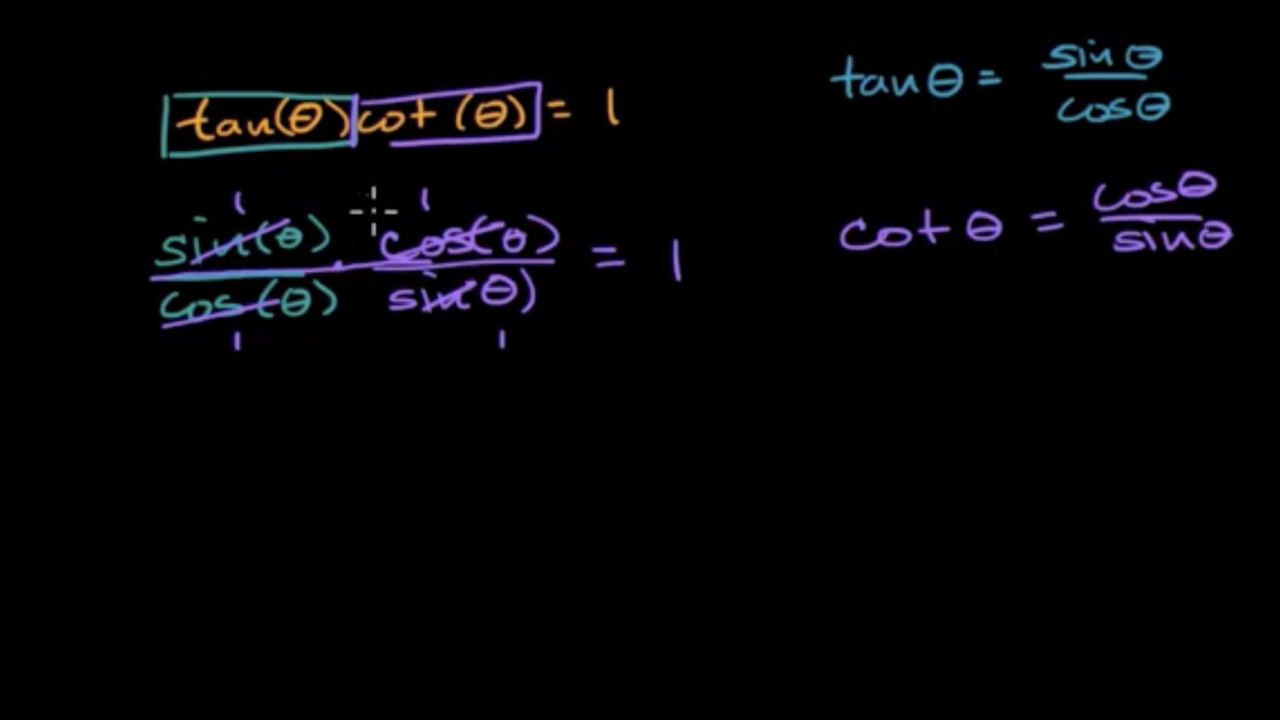 tan(θ)cot(θ) = 1
tanθ = sinθ/cosθ
1 1
sin(θ)/cos(θ) · cos(θ)/sinθ) = 1
1 1
cot θ = cosθ/sinθ